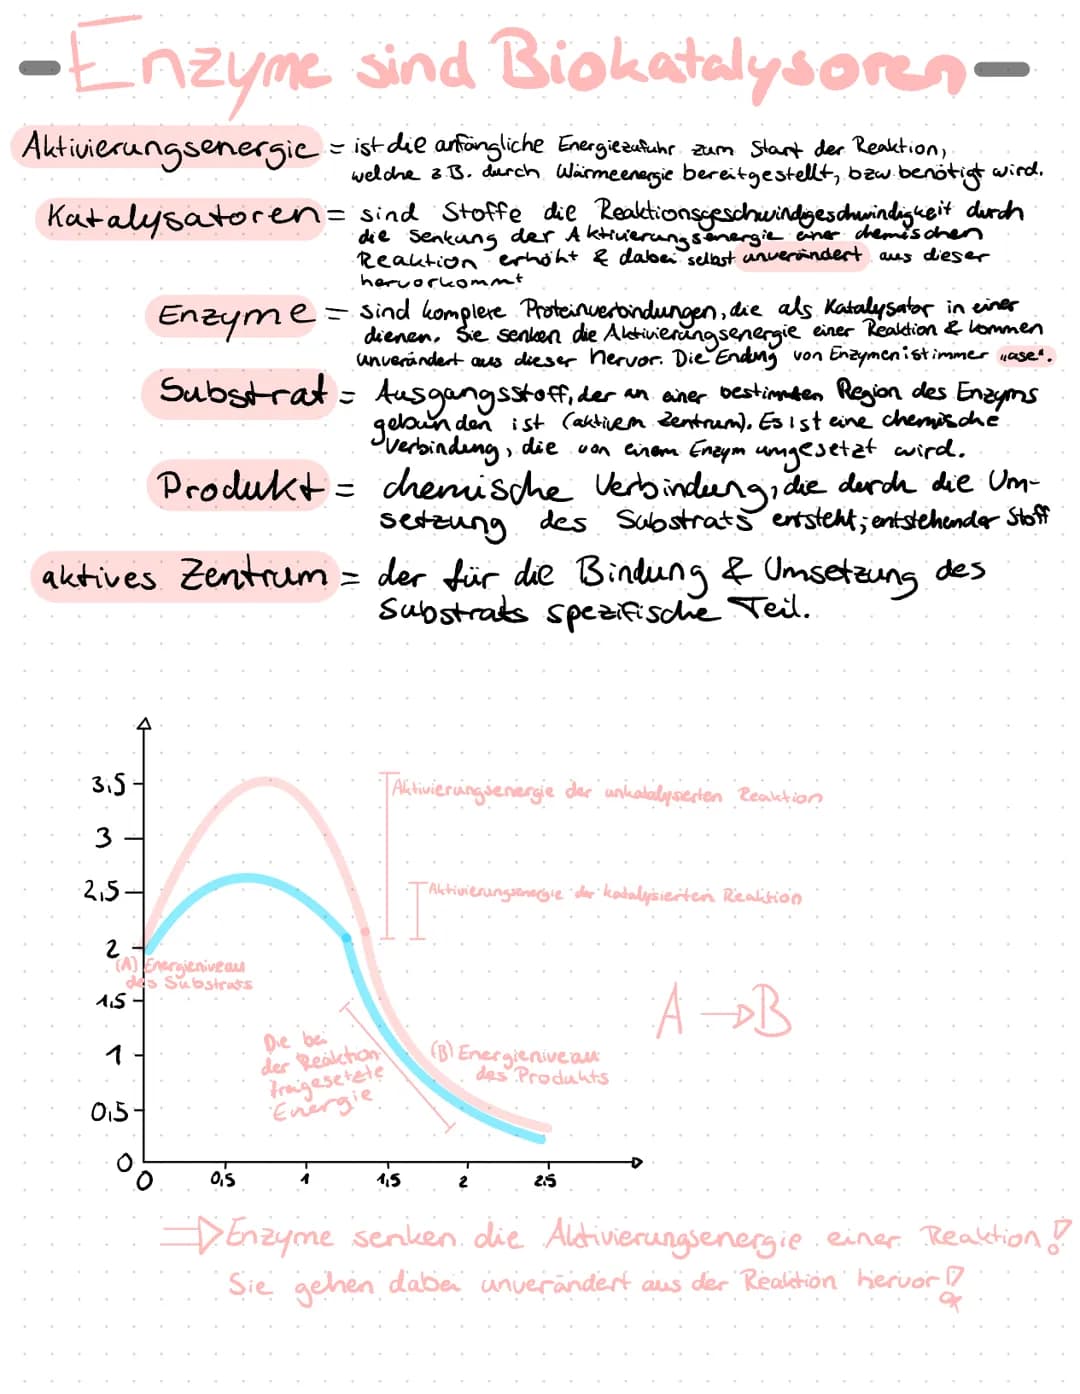 - Enzyme sind Biokatalysoren -
Aktivierungsenergie = ist die anfängliche Energiezufuhr zum Start der Reaktion,
welche z.B. durch Wärmeenergie bereitgestellt, bzw. benötigt wird.
Katalysatoren = sind Stoffe die Reaktionsgeschwindgeschwindigkeit durch
die Senkung der Aktivierungsenergie einer chemischen
Reaktion erhöht & dabei selbst unverändert aus dieser
hervorkommt
Enzyme = sind komplexe Proteinverbindungen, die als Katalysator in einer
dienen. Sie senken die Aktivierungsenergie einer Reaktion & kommen
unverändert aus dieser hervor. Die Endung von Enzymen ist immer „ase".
Substrat = Ausgangsstoff, der an einer bestimmten Region des Enzyms
gebunden ist (aktivem Zentrum). Es ist eine chemische
Verbindung, die von einem Enzym umgesetzt wird.
Produkt = chemische Verbindung, die durch die Um-
setzung des Substrats entsteht; entstehender Stoff
aktives Zentrum = der für die Bindung & Umsetzung des
Substrats spezifische Teil.
3,5
Aktivierungsenergie der unkatalysierten Reaktion
3
2,5
Aktivierungsenergie der katalysierten Reaktion
2
(A) Energieniveau
des Substrats
1,5
A → B
Die bei
der Reaktion
freigesetzte
Energie
1
(B) Energieniveau
des Produkts
0,5
0
0 0,5 1 1,5 2 2,5
⇒ Enzyme senken die Aktivierungsenergie einer Reaktion!
Sie gehen dabei unverändert aus der Reaktion hervor!